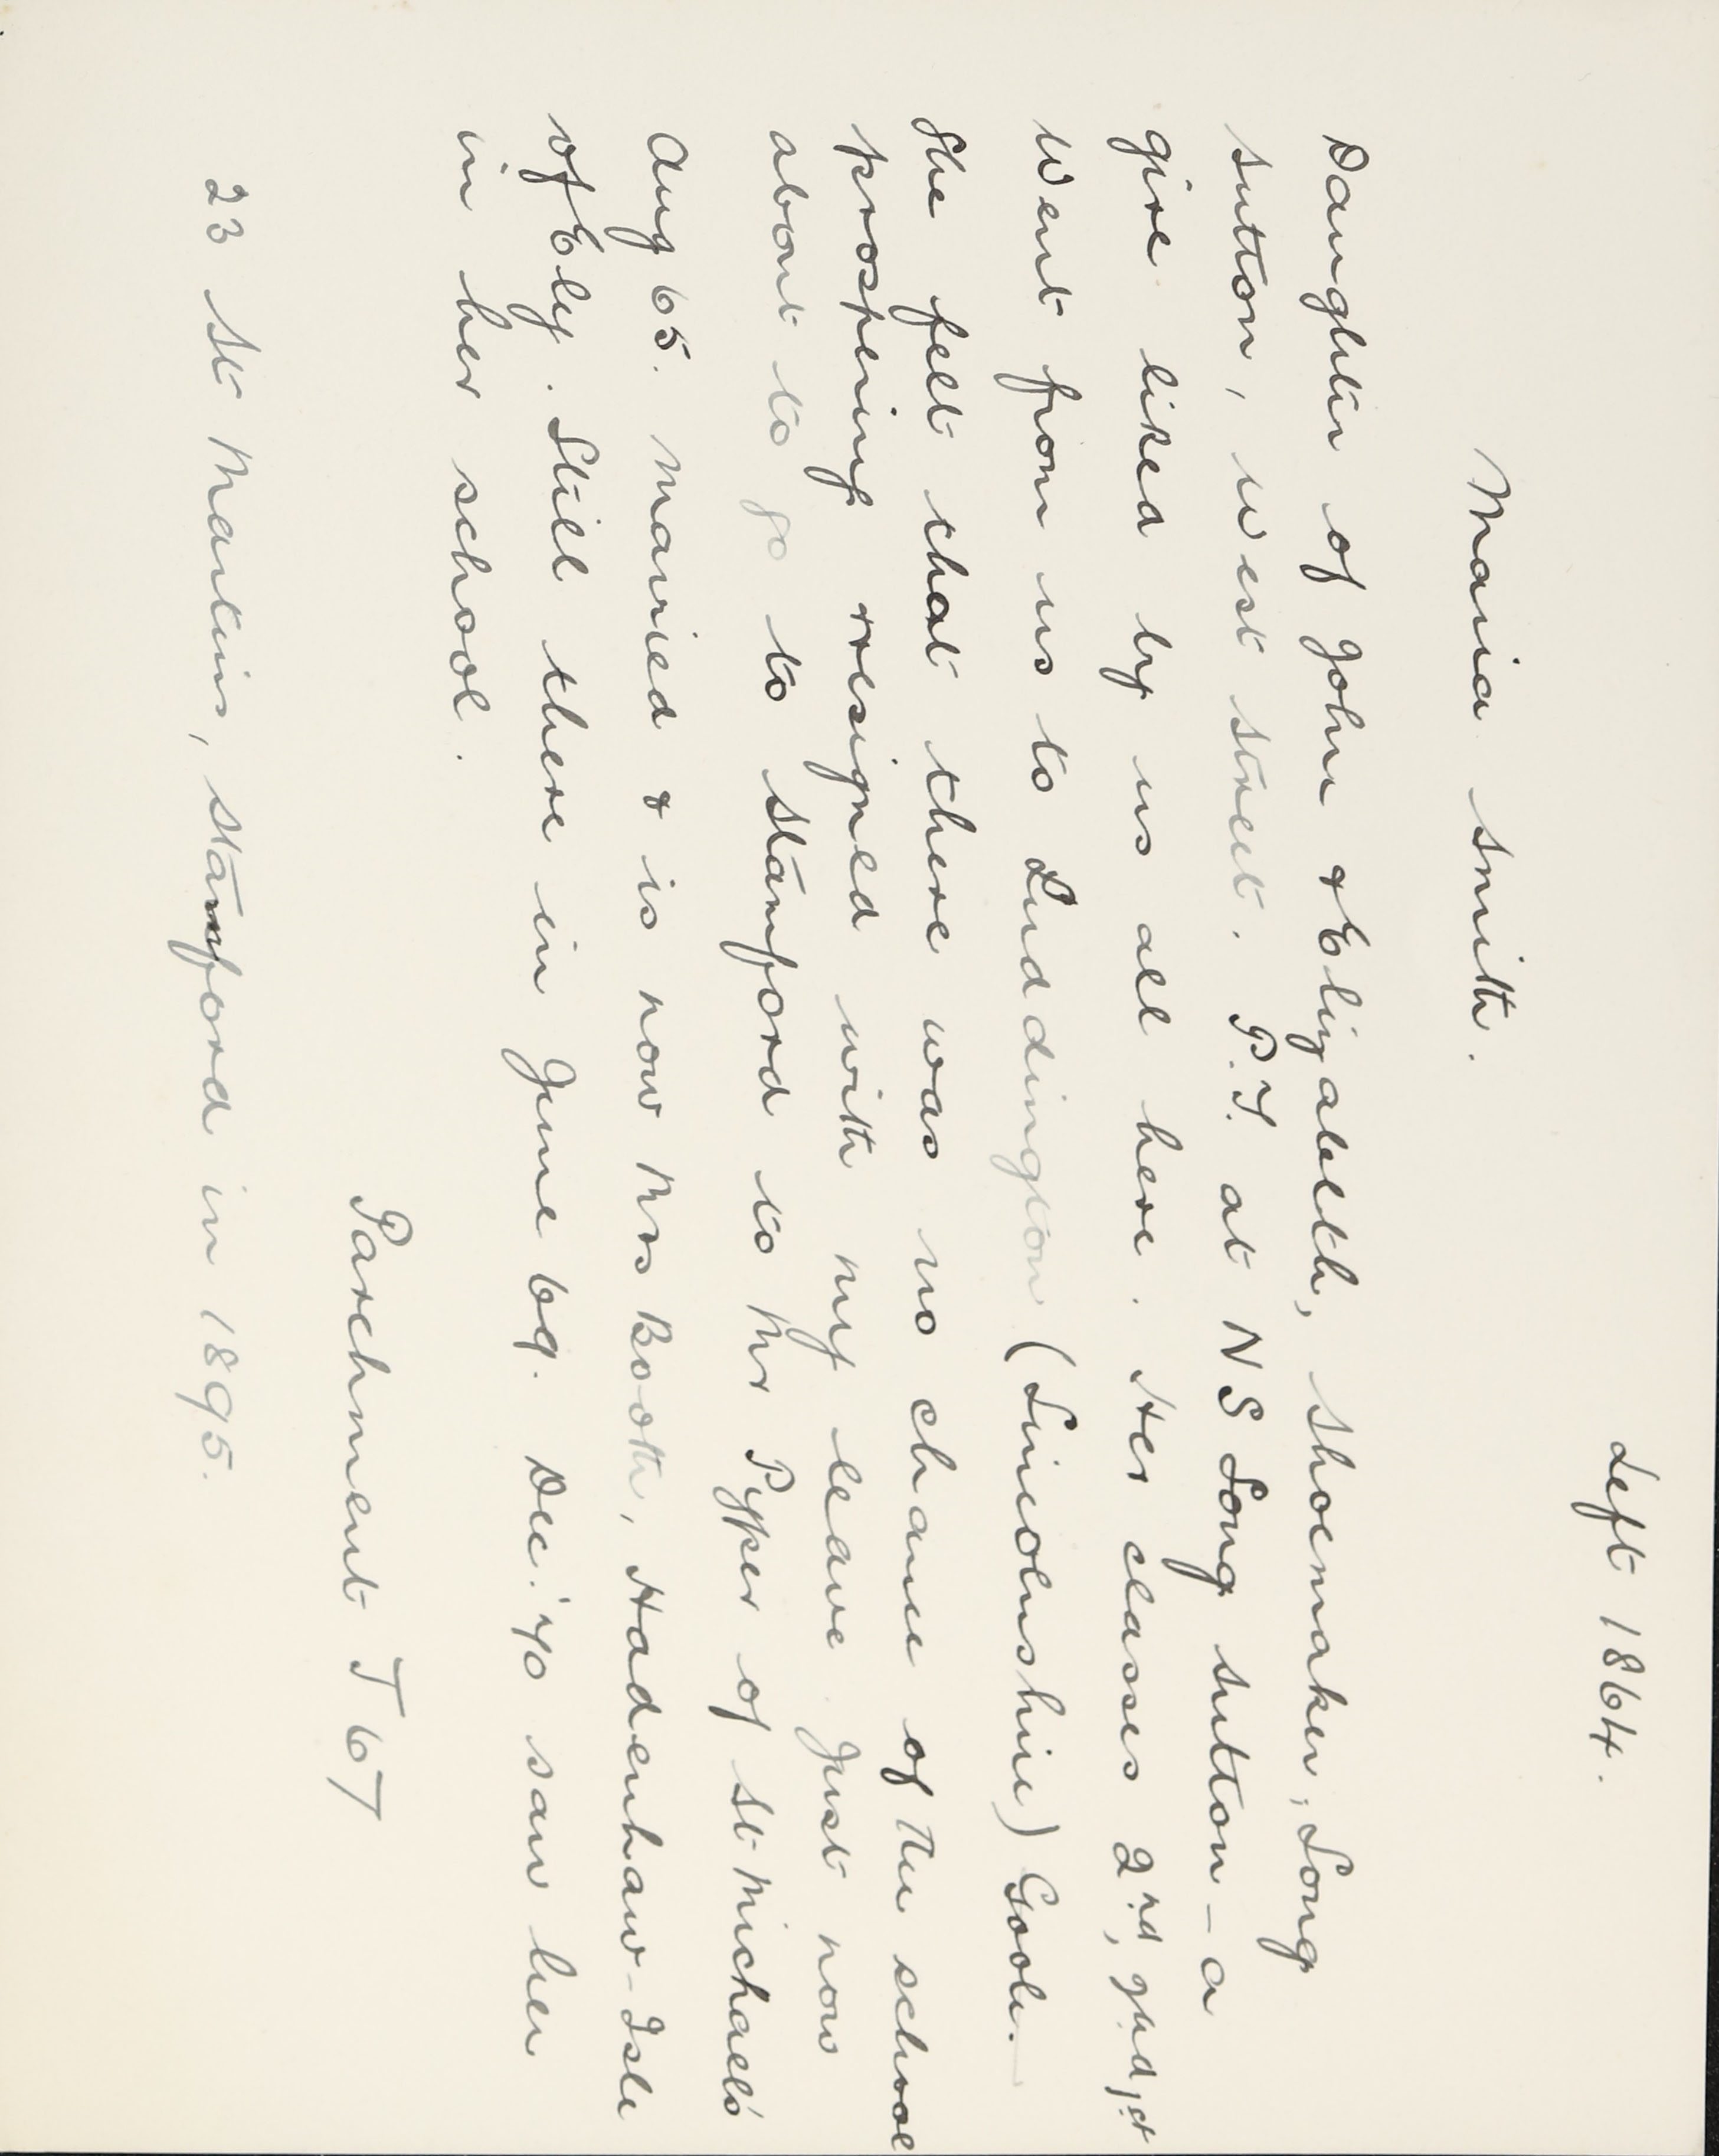 Left 1864.
Maria Smith.
Daughter of John & Elizabeth, shoemaker, Long
Sutton, West Street. P.T. at NS Long Sutton - a
girl liked by us all here. Her classes 2nd, 3rd, 1st
Went from us to Luddington (Lincolnshire) Goole.
She felt that there was no chance of the school
prospering resigned with my leave just now
about to go to Stamford to Mr Pyper of St Michael's
Aug 65. Married & is now Mrs Booth, Haddenham - Isle
of Ely. Still there in June 69. Dec: '70 saw her
in her school.
Parchment J 67
23 St Martins, Stamford in 1895.